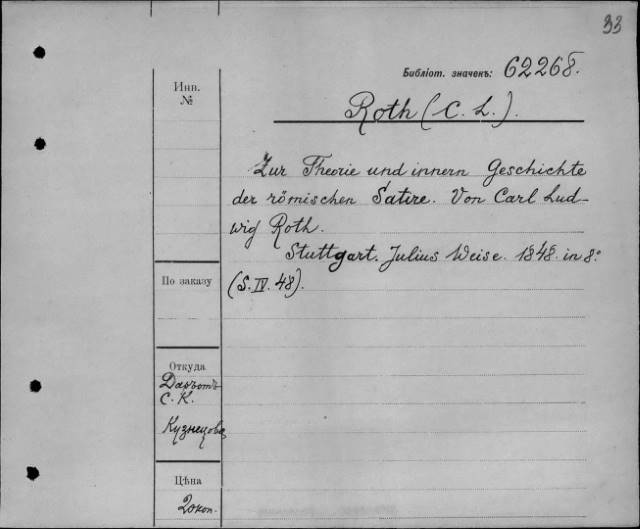 33
Библіот. значекъ: 62268.
Инв.
№
Roth (C. L.).
Zur Theorie und innern Geschichte
der römischen Satire. Von Carl Lud-
wig Roth.
Stuttgart. Julius Weise. 1848. in 8°
(S. IV. 48).
По заказу
Откуда
Даръ отъ
С. К.
Кузнецова
Цѣна
20 коп.